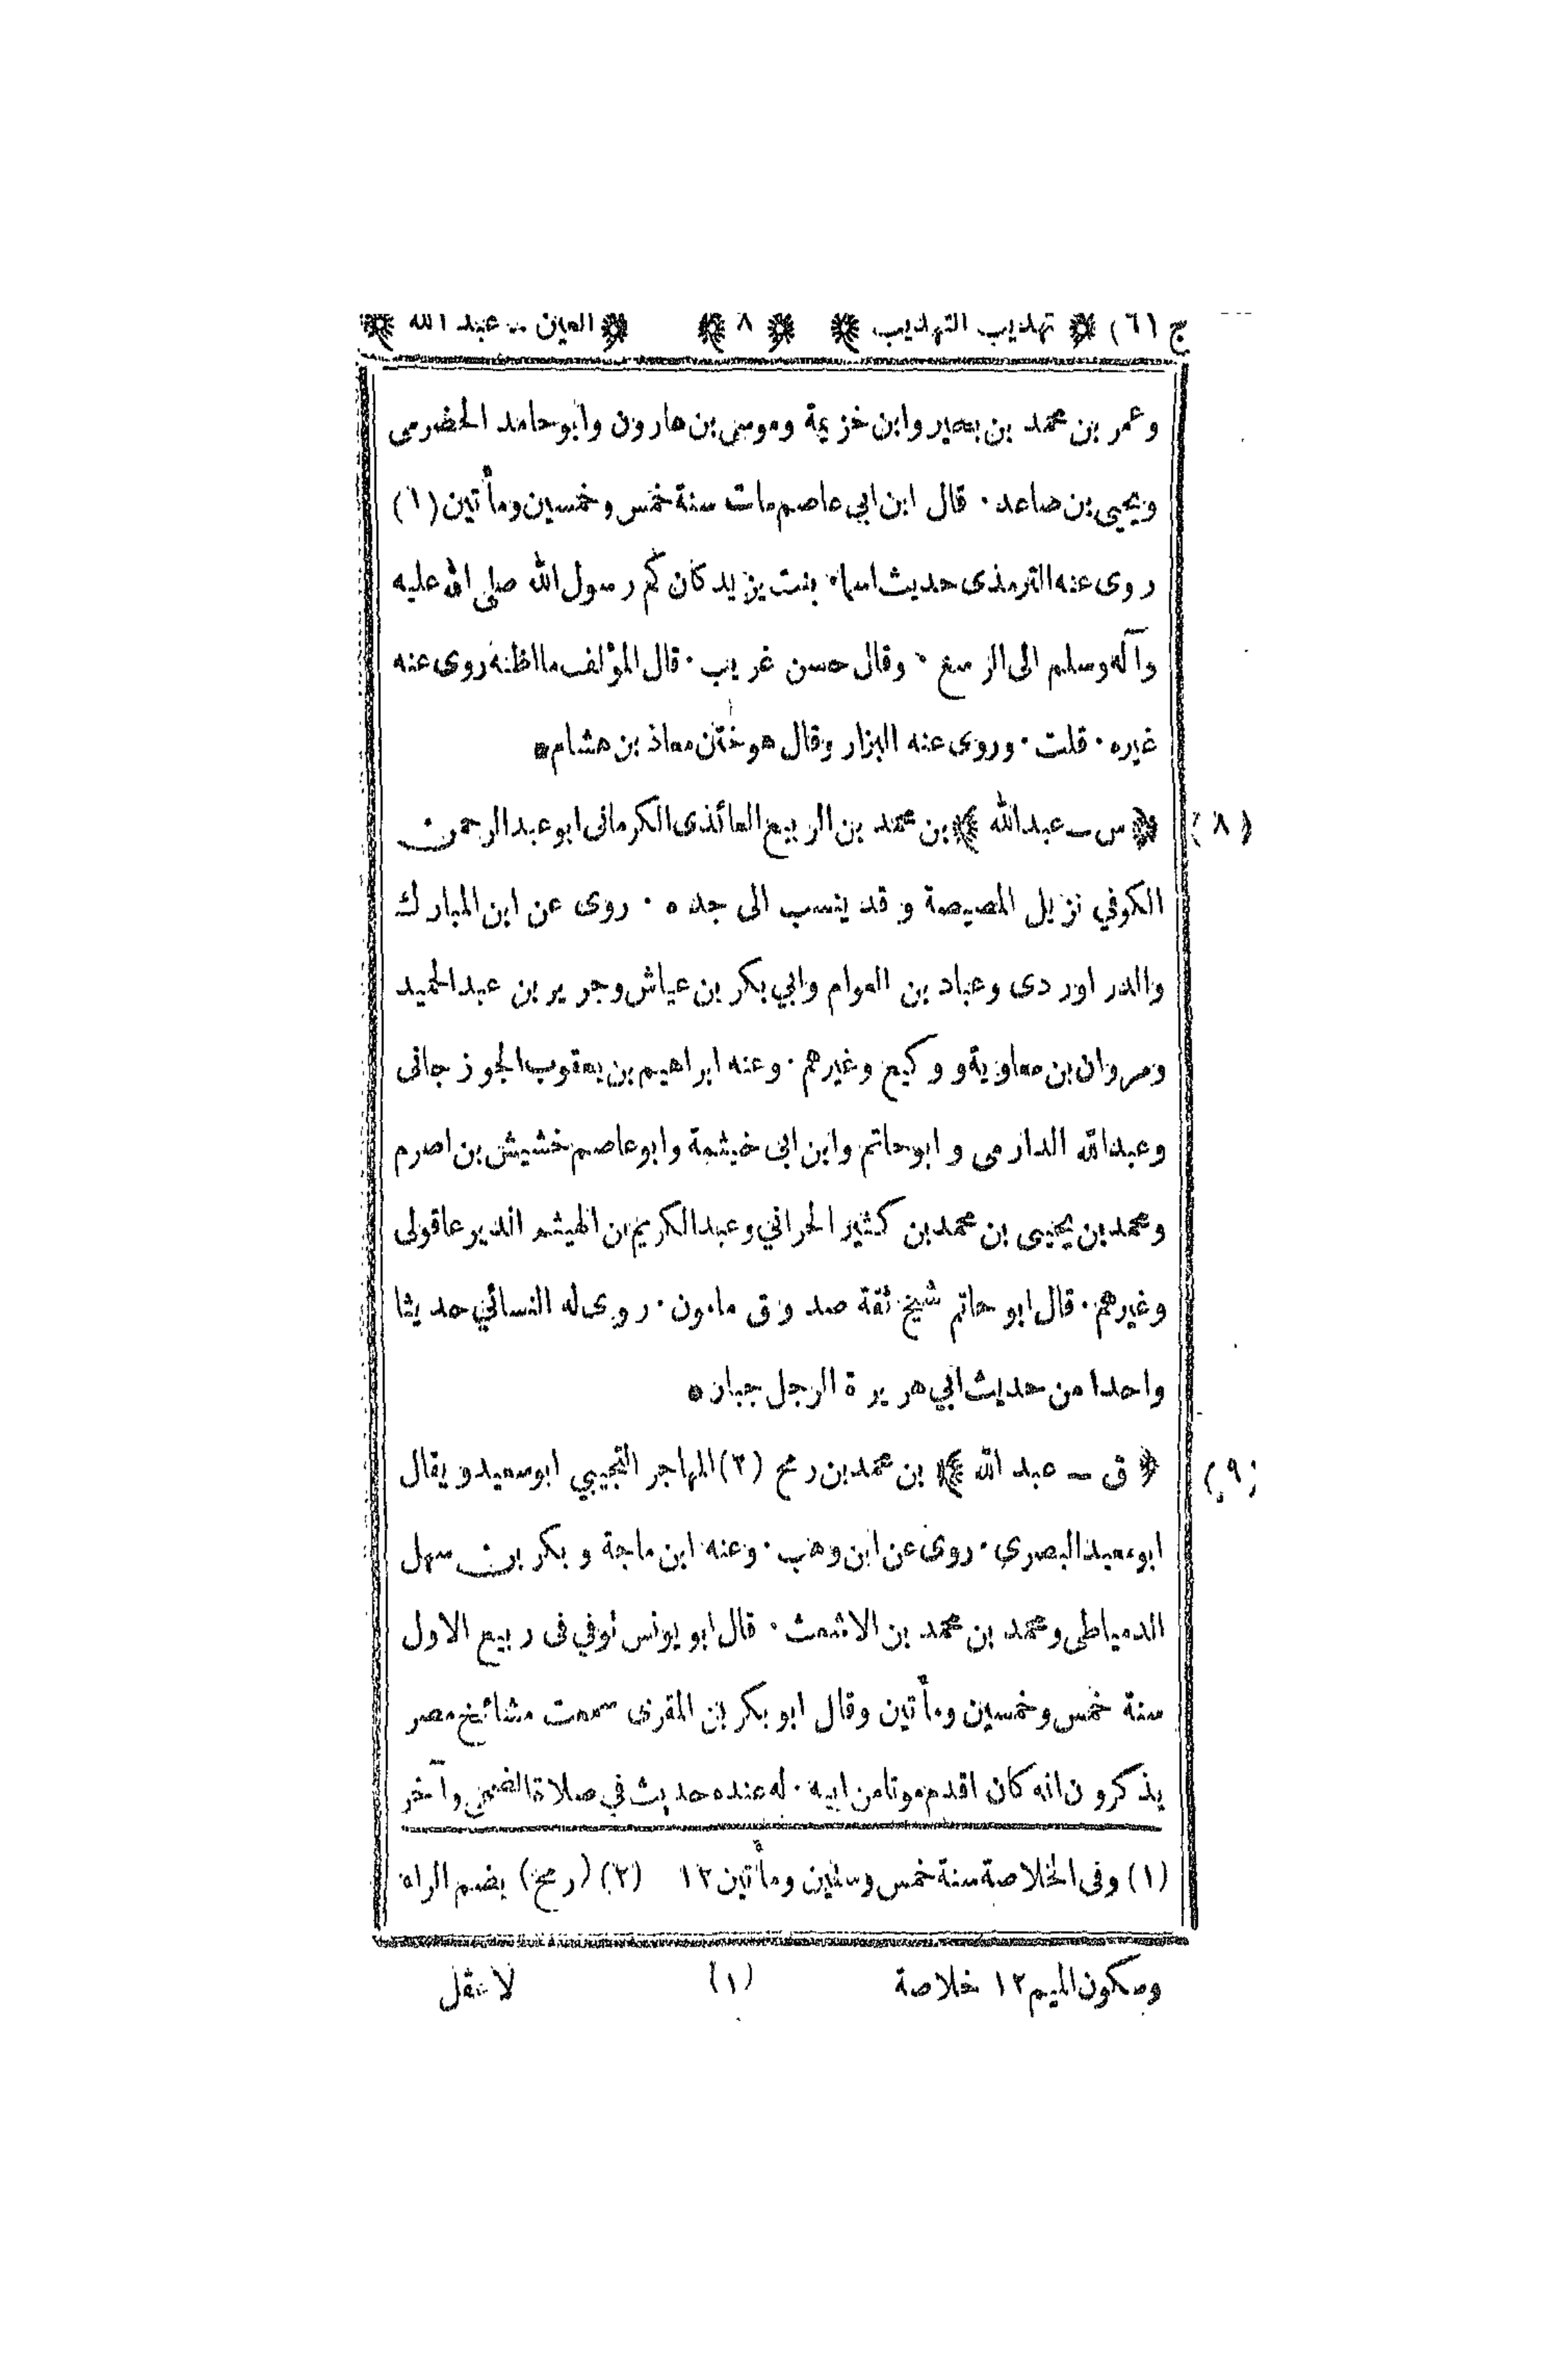 ج (٦) ﴿ تهذيب التهذيب ﴾ ﴿ ٨ ﴾ ﴿ العين - عبد الله ﴾
وعمر بن محمد بن بجير وابن خزيمة وموسى بن هارون وابو حامد الحضرمى
ويحيى بن صاعد · قال ابن ابي عاصم مات سنة خمس وخمسين ومأتين (١)
روى عنه الترمذى حديث اسماء بنت يزيد كان كم رسول الله صلى الله عليه
وآله وسلم الى الرسغ · وقال حسن غريب · قال المؤلف ما اظنه روى عنه
غيره · قلت · وروى عنه البزار وقال هو ختن معاذ بن هشام ٥
(٨) ﴿ س - عبد الله ﴾ بن محمد بن الربيع العائذى الكرمانى ابو عبد الرحمن
الكوفي نزيل المصيصة وقد ينسب الى جده · روى عن ابن المبارك
والدراوردى وعباد بن العوام وابي بكر بن عياش وجرير بن عبد الحميد
ومروان بن معاوية و وكيع وغيرهم · وعنه ابراهيم بن يعقوب الجوزجانى
وعبد الله الدارمى و ابو حاتم وابن ابى خيثمة وابو عاصم خشيش بن اصرم
ومحمد بن يحيى بن محمد بن كثير الحراني وعبد الكريم بن الهيثم الديرعاقولى
وغيرهم · قال ابو حاتم شيخ ثقة صدوق مامون · روى له النسائي حديثا
واحدا من حديث ابي هريرة الرجل جبار ٥
(٩) ﴿ ق - عبد الله ﴾ بن محمد بن رمح (٢) المهاجر التجيبي ابو سعيد و يقال
ابو معبد البصري · روى عن ابن وهب · وعنه ابن ماجة و بكر بن سهل
الدمياطى ومحمد بن محمد بن الاشعث · قال ابو يونس توفي فى ربيع الاول
سنة خمس وخمسين ومأتين وقال ابو بكر بن المقرى سمعت مشائخ مصر
يذكرون انه كان اقدم موتا من ابيه · له عنده حديث في صلاة الضحى وآخر
(١) وفى الخلاصة سنة خمس وستين ومأتين ١٢ (٢) (رمح) بضم الراء
وسكون الميم ١٢ خلاصة (١) لا عقل